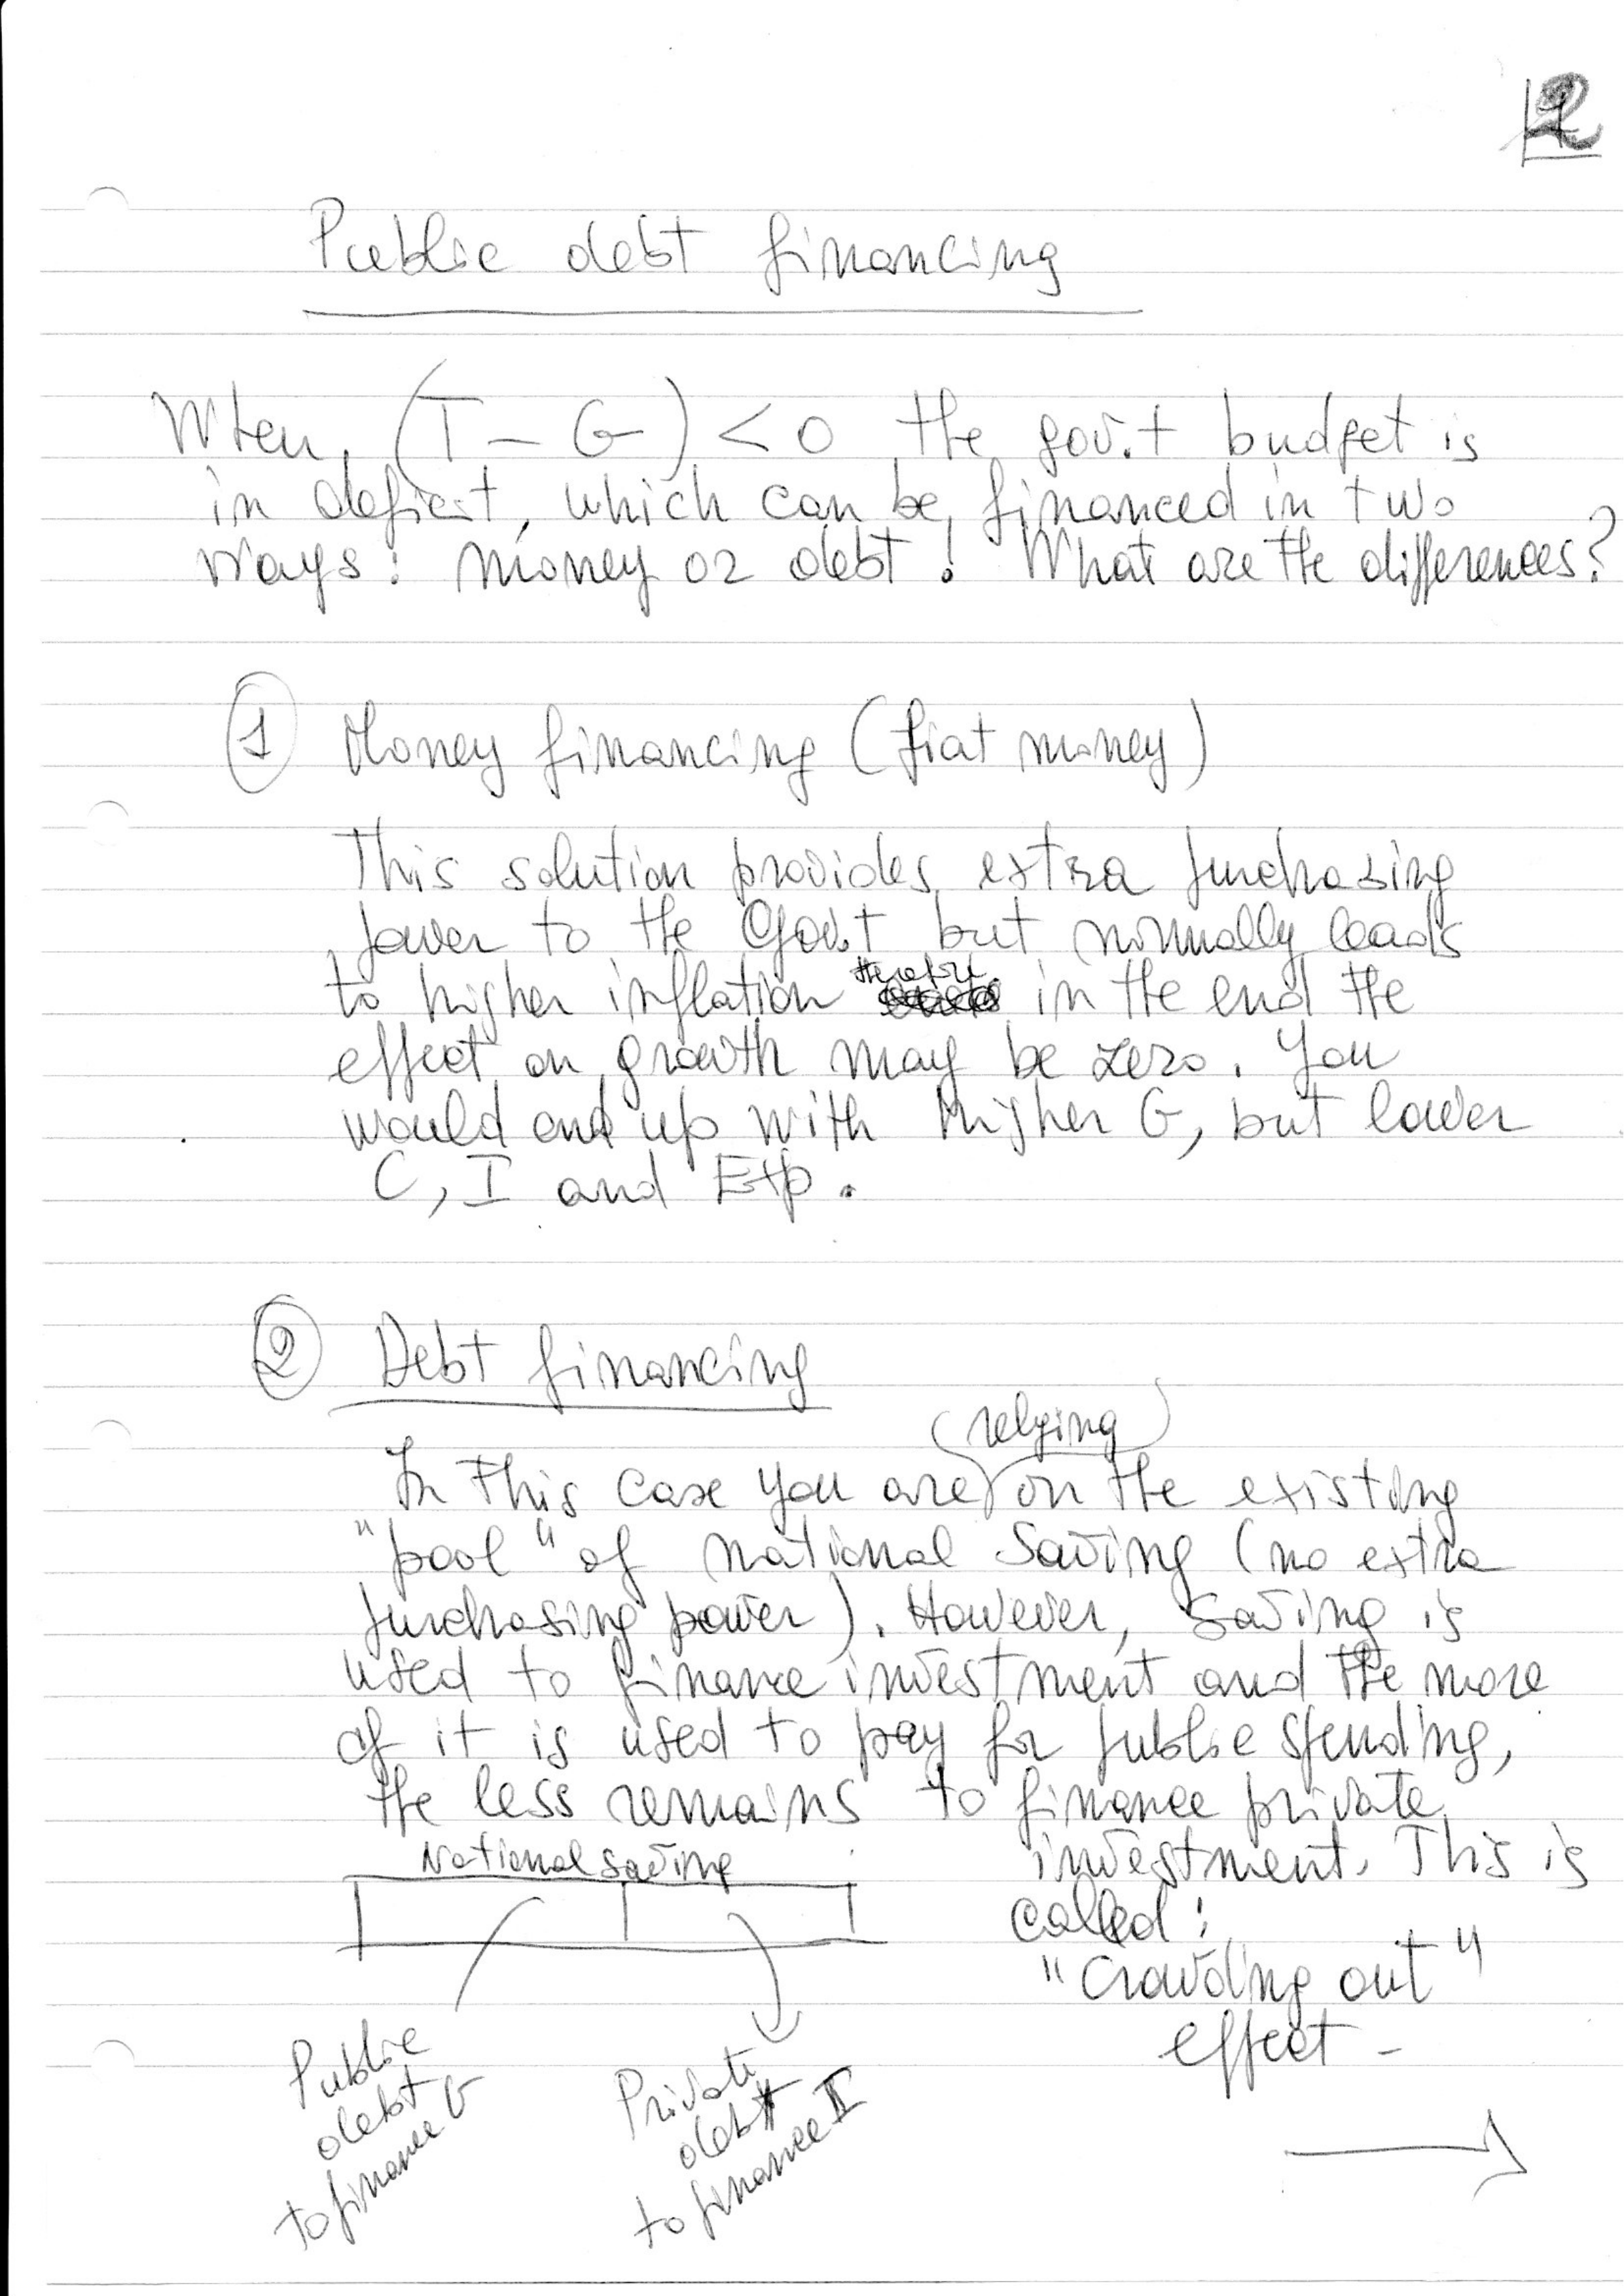 12
Public debt financing
When (T - G) < 0 the gov.t budget is
in deficit, which can be financed in two
ways: money or debt! What are the differences?
1 Money financing (fiat money)
This solution provides extra purchasing
power to the Gov.t but normally leads
to higher inflation therefore in the end the
effect on growth may be zero. You
would end up with higher G, but lower
C, I and Exp.
2 Debt financing
In this case you are relying on the existing
"pool" of national saving (no extra
purchasing power). However, saving is
used to finance investment and the more
of it is used to pay for public spending,
the less remains to finance private
investment. This is
called:
"crowding out"
effect -
National saving
Public
debt
to finance G
Private
debt
to finance I